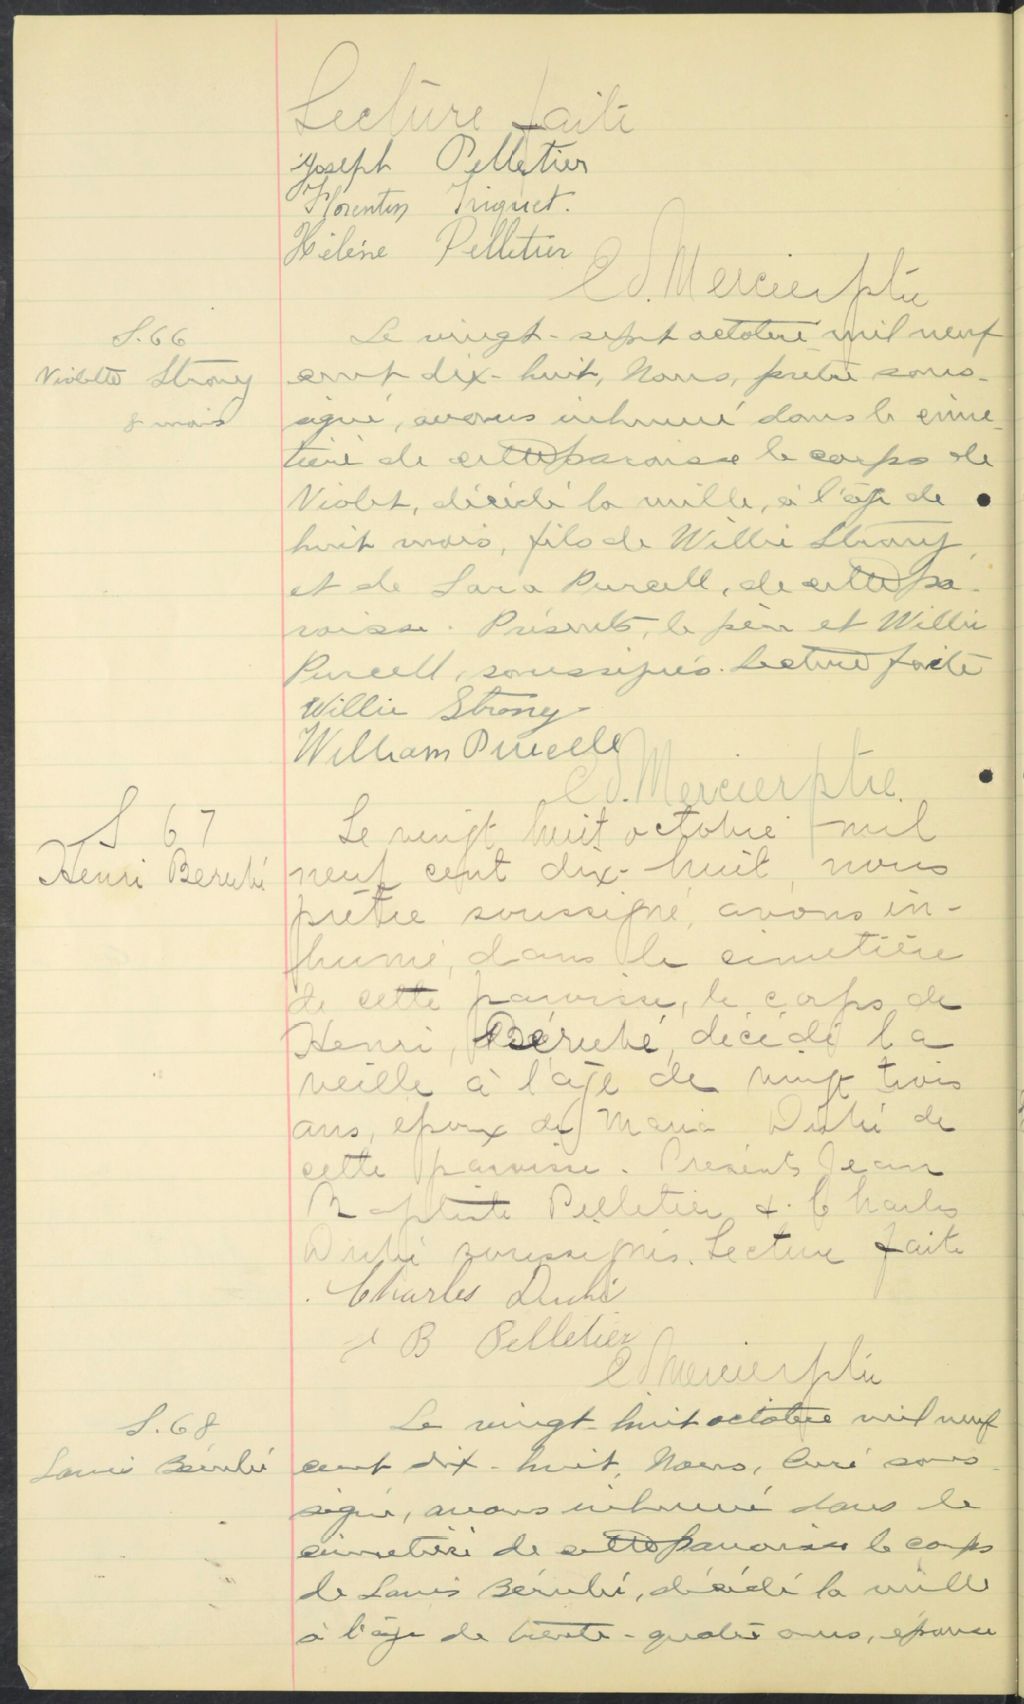 Lecture faite
Joseph Pelletier
Florentin Triquet.
Hélène Pelletier
Ed. Mercier ptre
S. 66
Violette Strony
8 mois
Le vingt-sept octobre mil neuf
cent dix-huit, Nous, prêtre sous-
signé, avons inhumé dans le cime-
tière de cette paroisse le corps de
Violet, décédé la veille, à l'âge de
huit mois, fils de Willie Strony,
et de Sara Purcell, de cette pa-
roisse. Présents, le père et Willie
Purcell, soussignés. Lecture faite
Willie Strony
William Purcelle
Ed. Mercier ptre.
S 67
Henri Berubé
Le vingt huit octobre mil
neuf cent dix-huit, nous
prêtre soussigné, avons in-
humé, dans le cimetière
de cette paroisse, le corps de
Henri, Bérubé, décédé la
veille à l'âge de vingt trois
ans, epoux de Maria Dubé de
cette paroisse. Presents Jean
Baptiste Pelletier & Charles
Dubé soussignés. Lecture faite
Charles Dubé
J B Pelletier
Ed Mercier ptre
S. 68
Louis Bérubé
Le vingt-huit octobre mil neuf
cent dix-huit, Nous, Curé sous-
signé, avons inhumé dans le
cimetière de cette paroisse le corps
de Louis Bérubé, décédé la veille
à l'âge de trente-quatre ans, époux